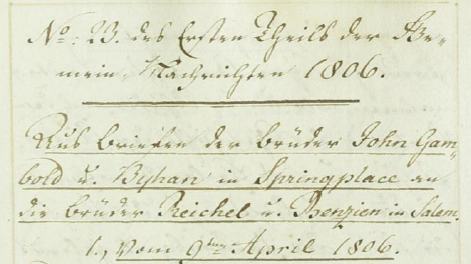 No. 23. des Ersten Theils der Ge-
mein-Nachrichten 1806.
Aus Briefen der Brüder John Gam-
bold u. Byhan in Springplace an
die Brüder Reichel u. Benzien in Salem.
1., Vom 9ten April 1806.